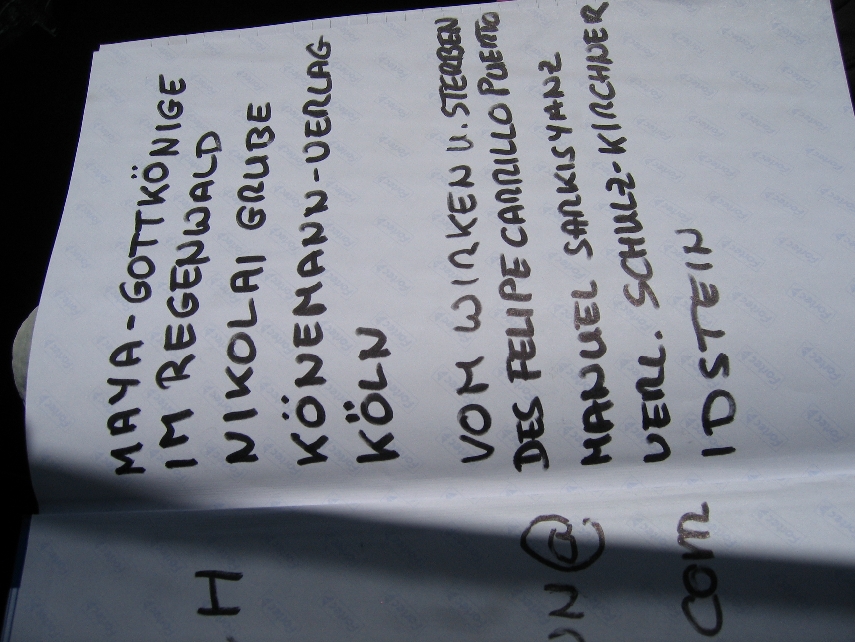 MAYA-GOTTKÖNIGE
IM REGENWALD
NIKOLAI GRUBE
KÖNEMANN-VERLAG
KÖLN
VOM WIRKEN U. STERBEN
DES FELIPE CARRILLO PUERTO
MANUEL SARKISYANZ
VERL. SCHULZ-KIRCHNER
IDSTEIN
H
UN@
COM